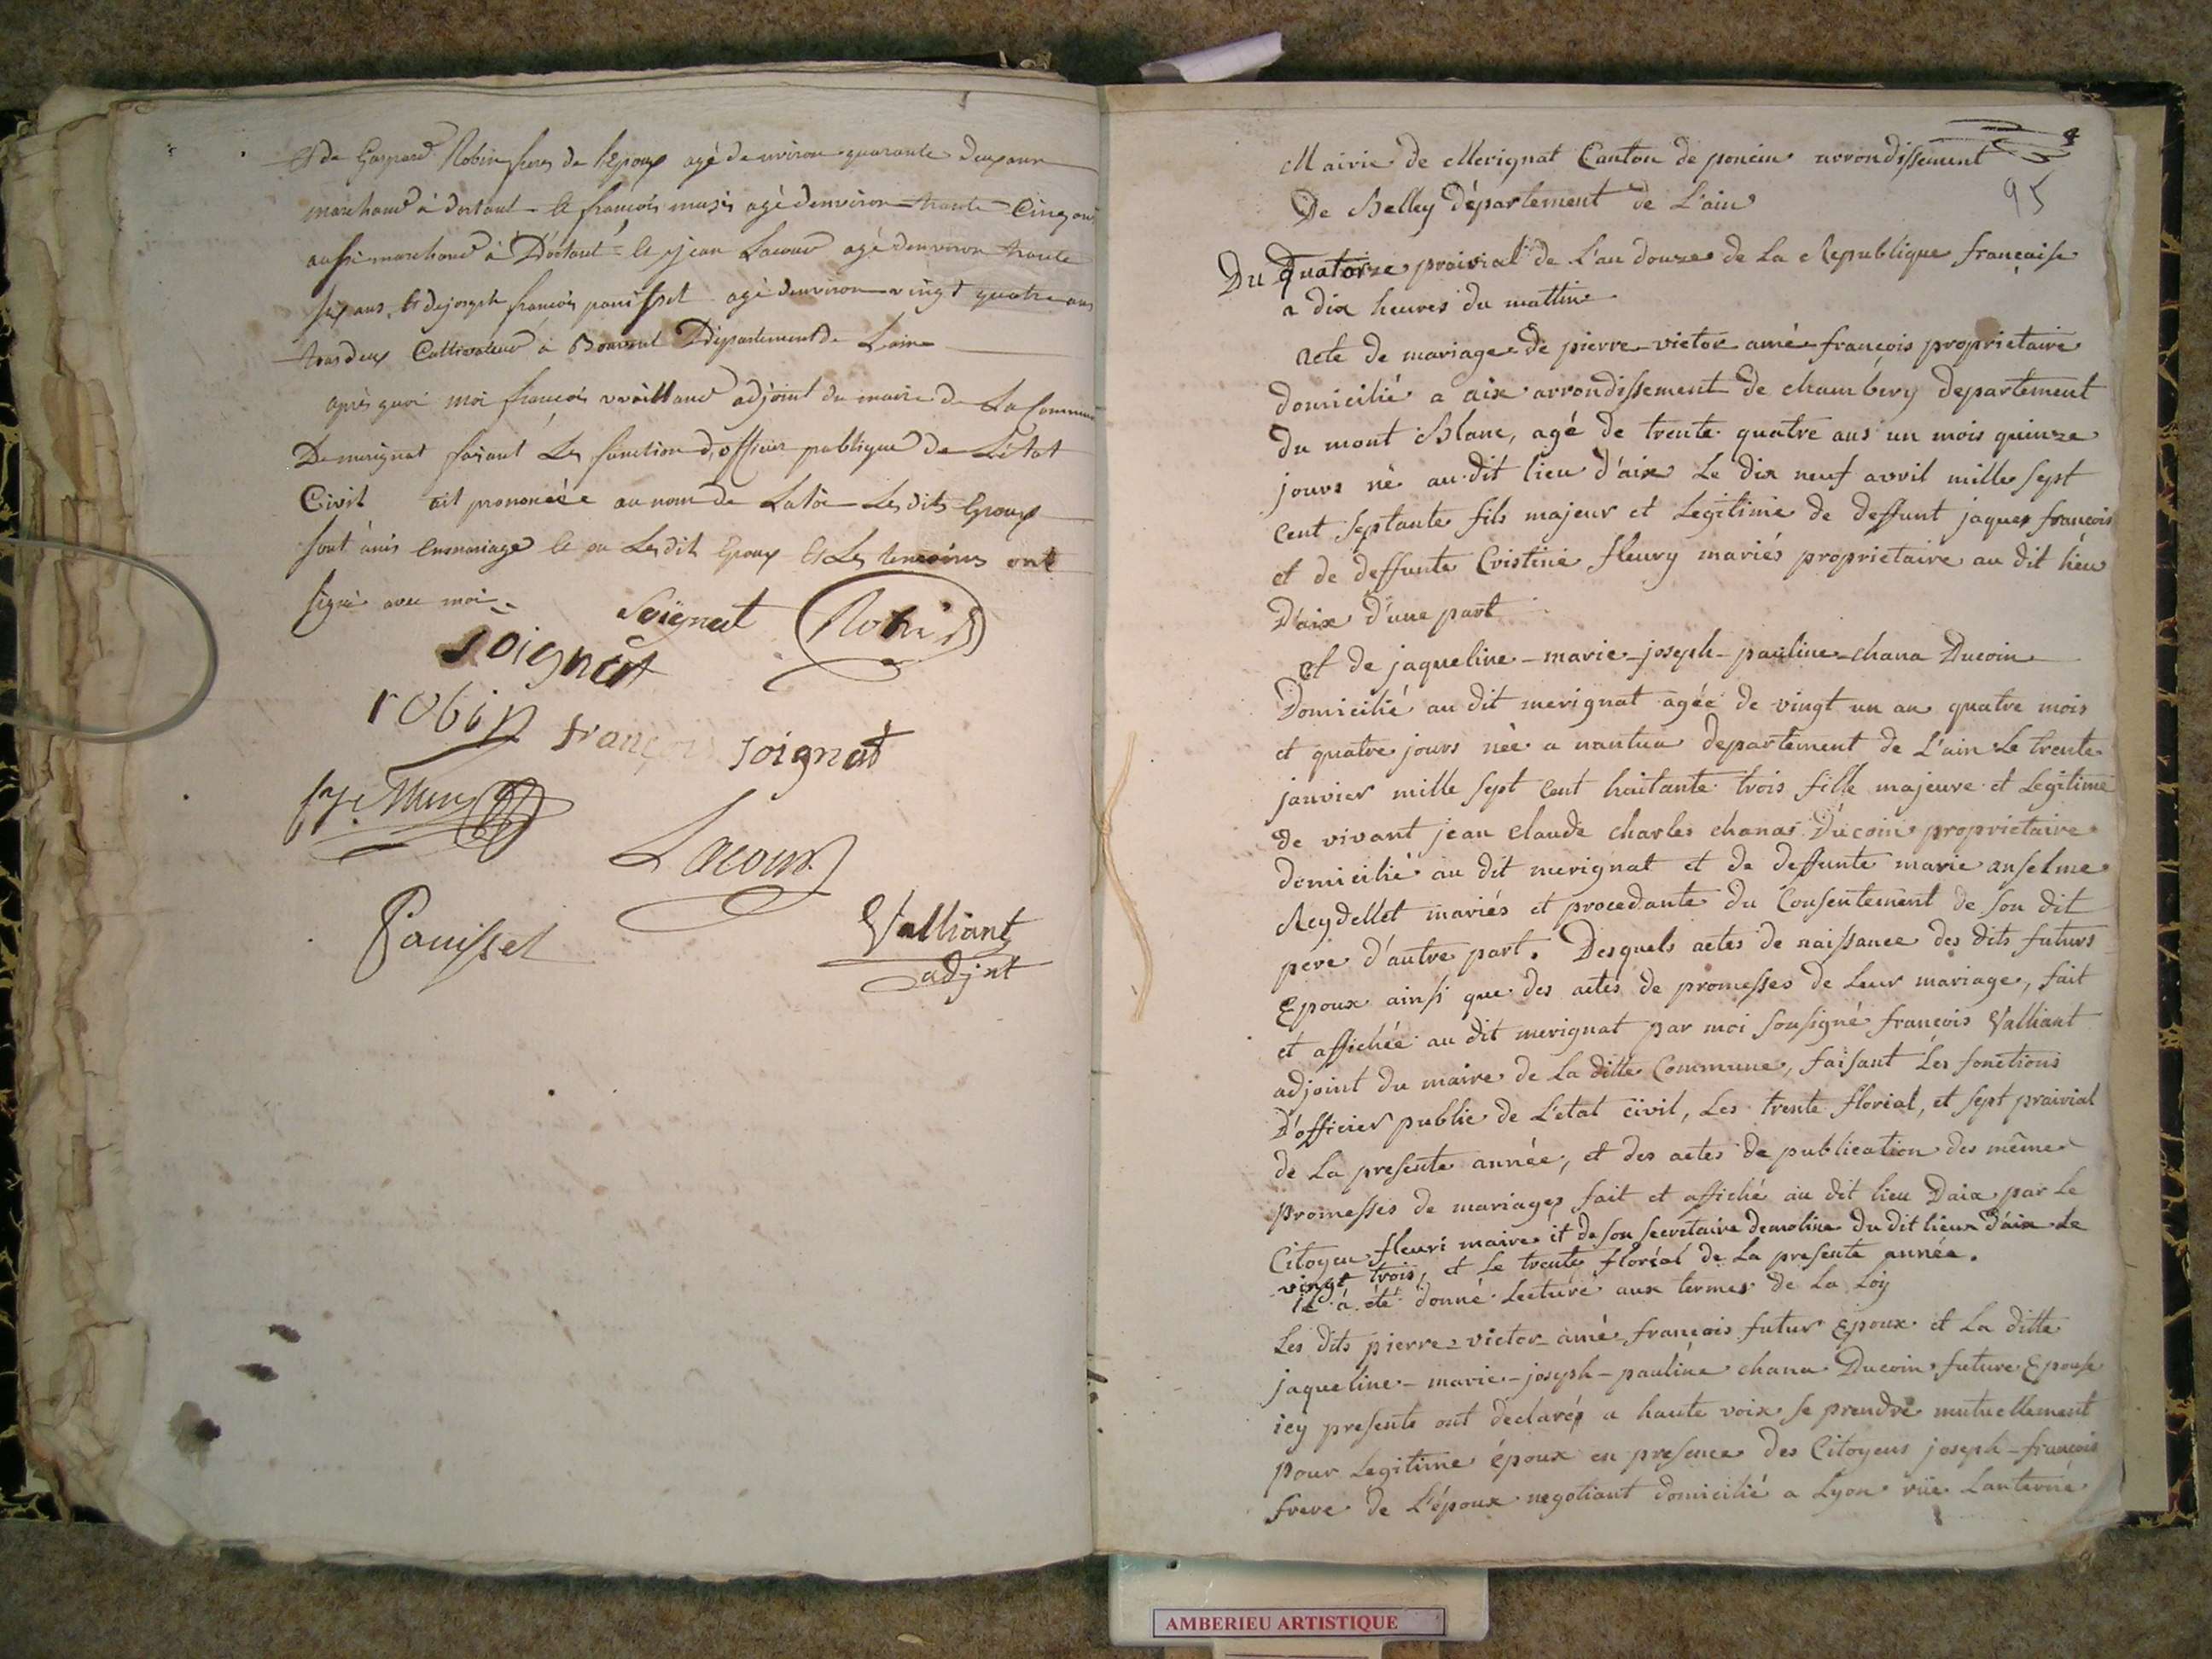 et de Gaspard Robin frere de l'Epoux agé denviron quarante deux ans
marchand à dortant et françois musi agé denviron trante Cinq ans
aussi marchand à Dortant et jean Lacour agé denviron trante
six ans et de joseph françois panisset agé denviron vingt quatre ans
tous deux Cultivateur à Département de Lain
après quoi moi françois vvailland adjoint du maire de La Commune
De merignat faisant Les fonction d'officier publique de Létat
Civil ait prononcée au nom de Laloi Les dits Epoux
sont unis en mariage et ou Les dit Epoux et Les temoins ont
signé avec moi
Soignat Robin
soignat
robin françois soignat
Lacour
Panisset
Valliant
adjnt
4
95
Mairie de Merignat Canton de poncin arrondissement
De Belley département de L'ain
Du Quatorze prairial de L'an douze de La Republique française
a dix heures du mattin
acte de mariage de pierre-victor amé françois proprietaire
domicilié a aix arrondissement de chambery departement
du mont Blanc, agé de trente quatre ans un mois quinze
jours né au dit lieu d'aix Le dix neuf avril mille sept
cent septante fils majeur et Legitime de deffunt jaques françois
et de deffunte Cristine fleury mariés proprietaire au dit lieu
D'aix d'une part
et de jaqueline-marie-joseph-pauline-chana Ducoin
Domicilié au dit merignat agée de vingt un an quatre mois
et quatre jours née a nantua departement de L'ain Le trente
janvier mille sept cent huitante trois fille majeure et Legitime
de vivant jean claude charles chanas Ducoin proprietaire
domicilié au dit merignat et de deffunte marie anselme
Reydellet mariés et procedante du Consentement de son dit
pere d'autre part. Desquels actes de naissance des dits futurs
Epoux ainsi que des actes de promesses de Leur mariage, fait
et affichée au dit merignat par moi sousigné françois Valliant
adjoint du maire de La ditte Commune, faisant Les fonctions
D'officier public de L'etat civil, Les trente floréal, et sept prairial
de La presente année, et des actes de publication des même
promesses de mariages fait et affiché au dit lieu Daix par Le
Citoyen fleuri maire et de son secretaire demoline du dit lieux d'aix Le
vingt trois, et Le trente floréal de La presente année.
il à été donné Lecture aux termes de La Loy
Les dits pierre-victor-amé-françois futur Epoux et La ditte
jaqueline-marie-joseph-pauline chana Ducoin future Epouse
icy presents ont declarés a haute voix se prendre mutuellement
pour Legitime époux en presence des Citoyens joseph-françois
frere de L'époux negotiant domicilié a Lyon rüe Lanterne
AMBERIEU ARTISTIQUE